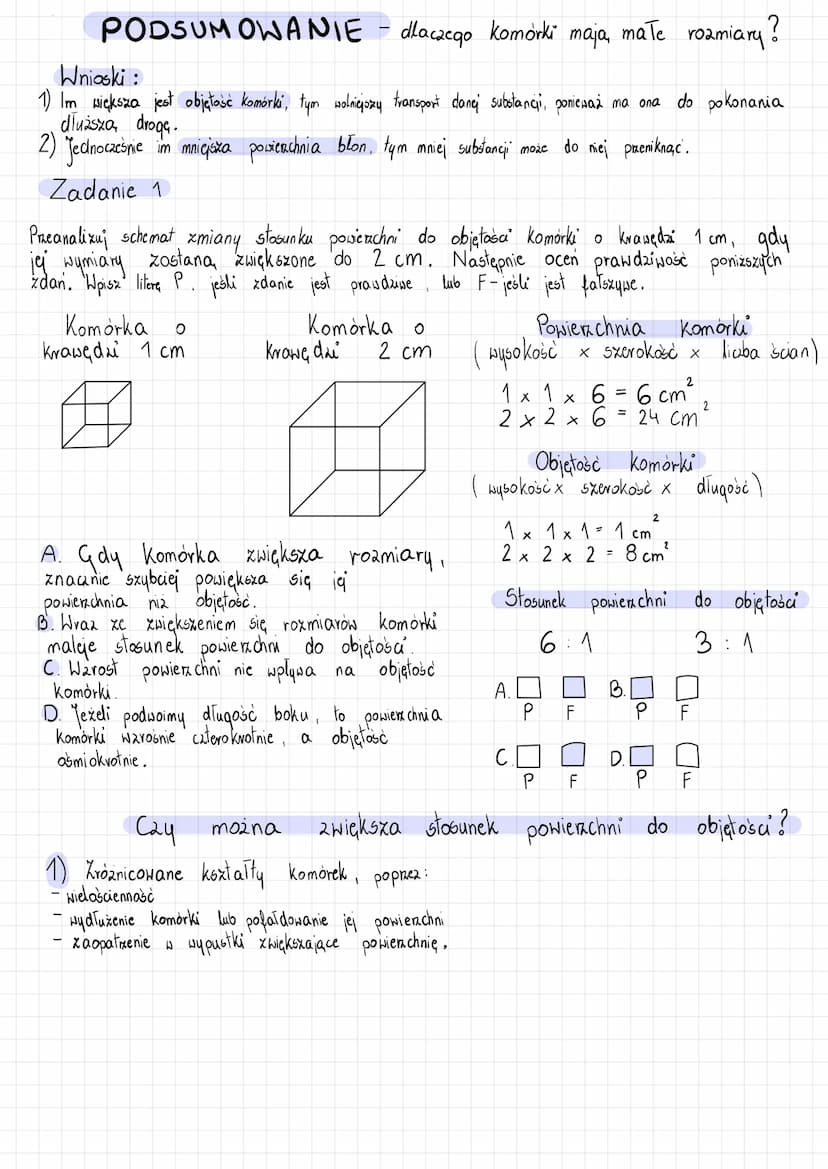 PODSUMOWANIE - dlaczego komórki mają małe rozmiary?
Wnioski:
1) Im większa jest objętość komórki, tym wolniejszy transport danej substancji, ponieważ ma ona do pokonania
dłuższą drogę.
2) Jednocześnie im mniejsza powierzchnia błon, tym mniej substancji może do niej przeniknąć.
Zadanie 1
Przeanalizuj schemat zmiany stosunku powierzchni do objętości komórki o krawędzi 1 cm, gdy
jej wymiary zostaną zwiększone do 2 cm. Następnie oceń prawdziwość poniższych
zdań. Wpisz literę P. jeśli zdanie jest prawdziwe, lub F-jeśli jest fałszywe.
Komórka o
krawędzi 1 cm
Komórka o
krawędzi 2 cm
Powierzchnia komórki
(wysokość x szerokość x liczba ścian)
1 x 1 x 6 = 6 cm²
2 x 2 x 6 = 24 cm²
Objętość komórki
(wysokość x szerokość x długość)
1 x 1 x 1 = 1 cm²
2 x 2 x 2 = 8 cm²
Stosunek powierzchni do objętości
6 : 1 3 : 1
A. Gdy komórka zwiększa rozmiary,
znacznie szybciej powiększa się jej
powierzchnia niż objętość.
B. Wraz ze zwiększeniem się rozmiarów komórki
maleje stosunek powierzchni do objętości.
C. Wzrost powierzchni nie wpływa na objętość
komórki.
D. Jeżeli podwoimy długość boku, to powierzchnia
komórki wzrośnie czterokrotnie, a objętość
ośmiokrotnie.
A. B.
P F P F
C. D.
P F P F
Czy można zwiększa stosunek powierzchni do objętości?
1) Zróżnicowane kształty komórek, poprzez:
- wielościenność
- wydłużenie komórki lub pofałdowanie jej powierzchni
- zaopatrzenie w wypustki zwiększające powierzchnię.